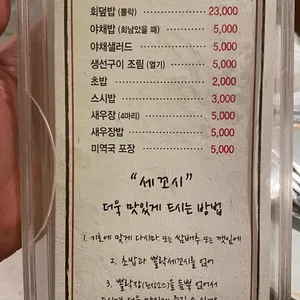 회덮밥 (뽈락) 23,000
야채밥 (회남았을 때) 5,000
야채샐러드 5,000
생선구이 조림 (열기) 5,000
초밥 2,000
스시밥 3,000
새우장 (4마리) 5,000
새우장밥 5,000
미역국 포장 5,000
"세꼬시"
더욱 맛있게 드시는 방법
1. 기호에 맞게 다시마 또는 쌈배추 또는 깻잎에
2. 초밥과 뽈락세꼬시를 얹어
3. 뽈락장(된장소스)을 듬뿍 얹어서